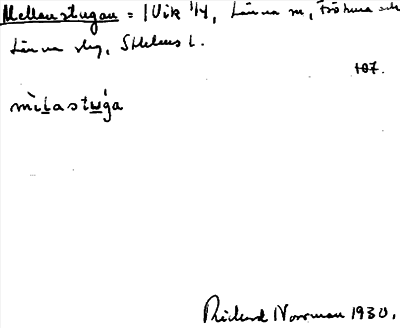 Mellanstugan = 1 Vik 1/4, Länna sn, Frötuna och
Länna slg, Sthlms l.
107.
mìlastẁga
Rickard Norrman 1930.